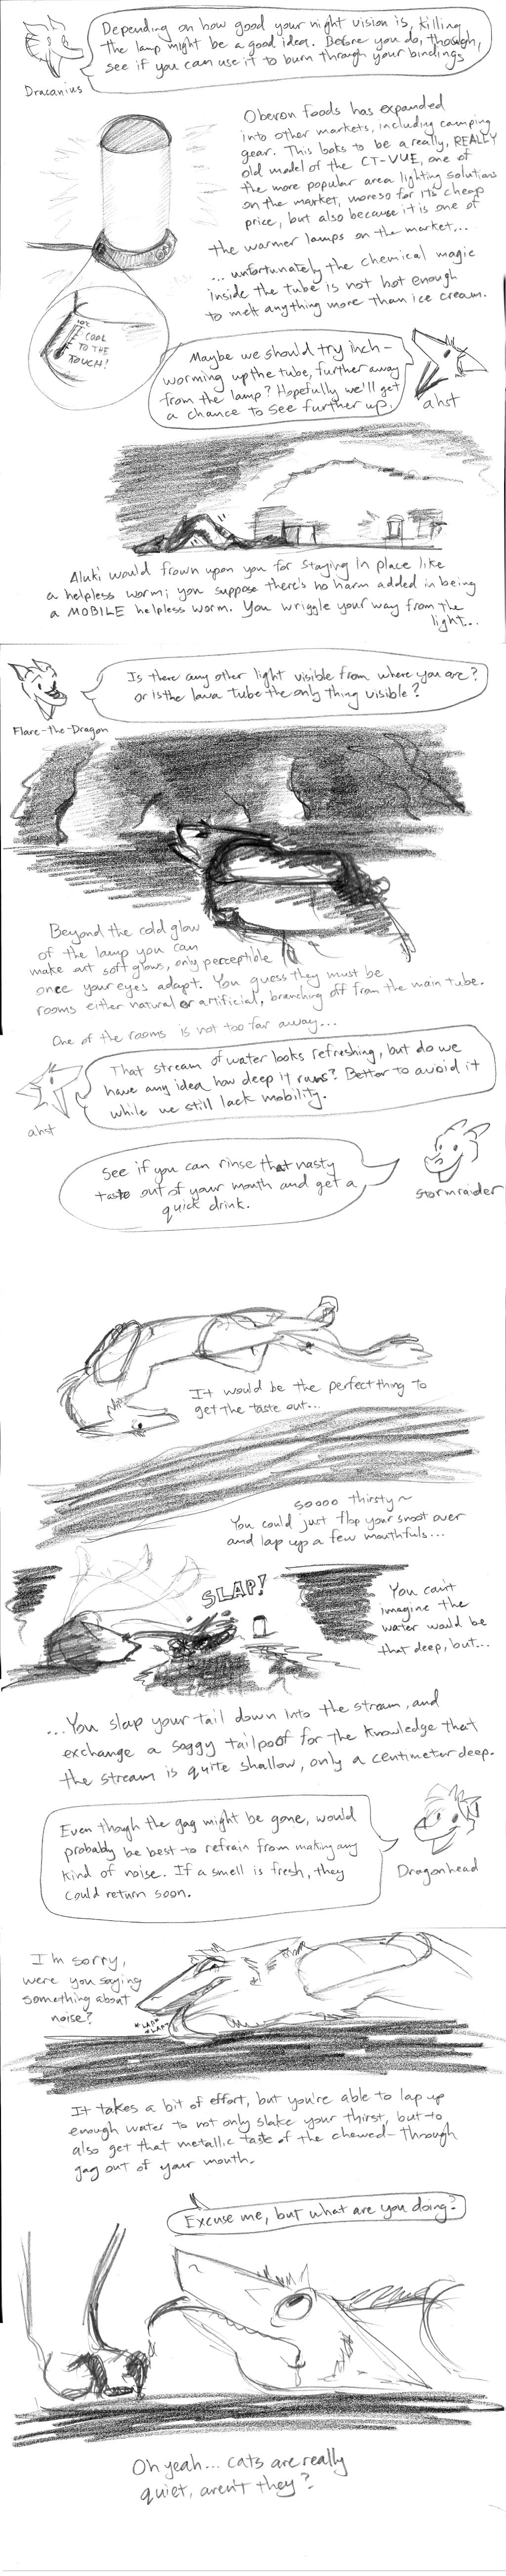 Depending on how good your night vision is, killing
the lamp might be a good idea. Before you do, though,
see if you can use it to burn through your bindings
Dracanius
Oberon foods has expanded
into other markets, including camping
gear. This looks to be a really, REALLY
old model of the CT-VUE, one of
the more popular area lighting solutions
on the market, moreso for its cheap
price, but also because it is one of
the warmer lamps on the market...
... unfortunately the chemical magic
inside the tube is not hot enough
to melt anything more than ice cream.
COOL
TO THE
TOUCH!
Maybe we should try inch-
worming up the tube, further away
from the lamp? Hopefully we'll get
a chance to see further up.
ahst
Aluki would frown upon you for staying in place like
a helpless worm; you suppose there's no harm added in being
a MOBILE helpless worm. You wriggle your way from the
light...
Is there any other light visible from where you are?
or is the lava tube the only thing visible?
Flare-the-Dragon
Beyond the cold glow
of the lamp you can
make out soft glows, only perceptible
once your eyes adapt. You guess they must be
rooms either natural or artificial, branching off from the main tube.
One of the rooms is not too far away...
That stream of water looks refreshing, but do we
have any idea how deep it runs? Better to avoid it
while we still lack mobility.
ahst
See if you can rinse that nasty
taste out of your mouth and get a
quick drink.
Stormraider
It would be the perfect thing to
get the taste out...
soooo thirsty~
You could just flop your snoot over
and lap up a few mouthfuls...
SLAP!
You can't
imagine the
water would be
that deep, but...
...You slap your tail down into the stream, and
exchange a soggy tailpoof for the knowledge that
the stream is quite shallow, only a centimeter deep.
Even though the gag might be gone, would
probably be best to refrain from making any
kind of noise. If a smell is fresh, they
could return soon.
Dragonhead
I'm sorry,
were you saying
something about
noise?
*LAP*
*LAP*
It takes a bit of effort, but you're able to lap up
enough water to not only slake your thirst, but to
also get that metallic taste of the chewed-through
gag out of your mouth.
Excuse me, but what are you doing?
Oh yeah... cats are really
quiet, aren't they?